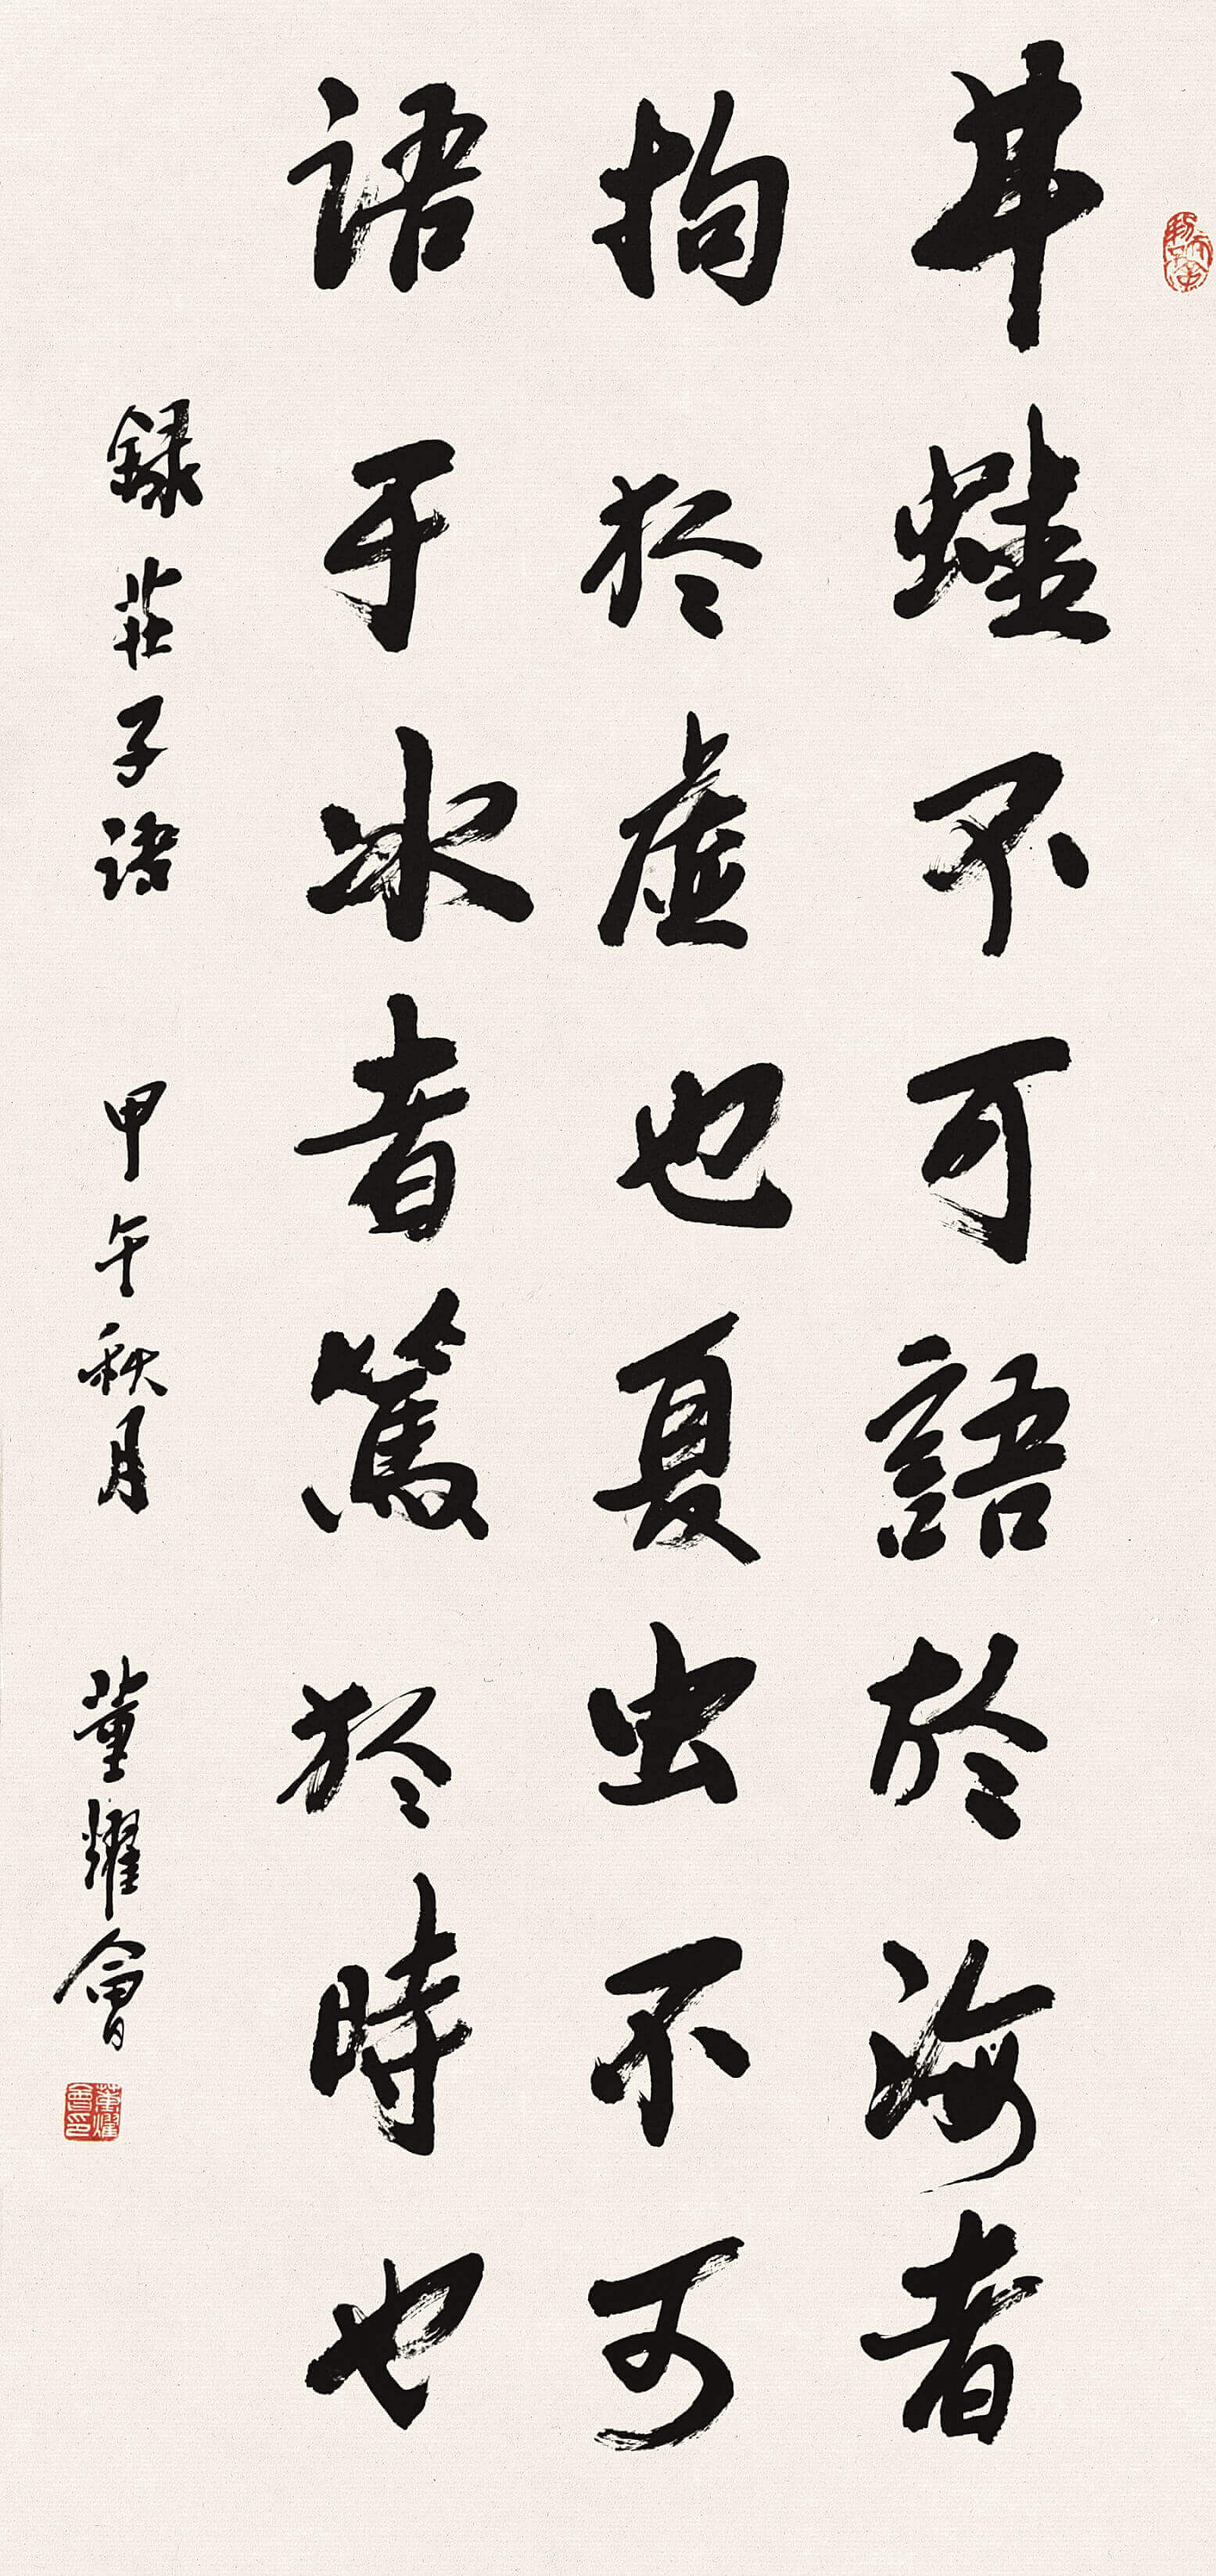 井蛙不可語於海者
拘於虛也夏虫不可
語于冰者篤於時也
録莊子語 甲午秋月 董耀會
董耀會印